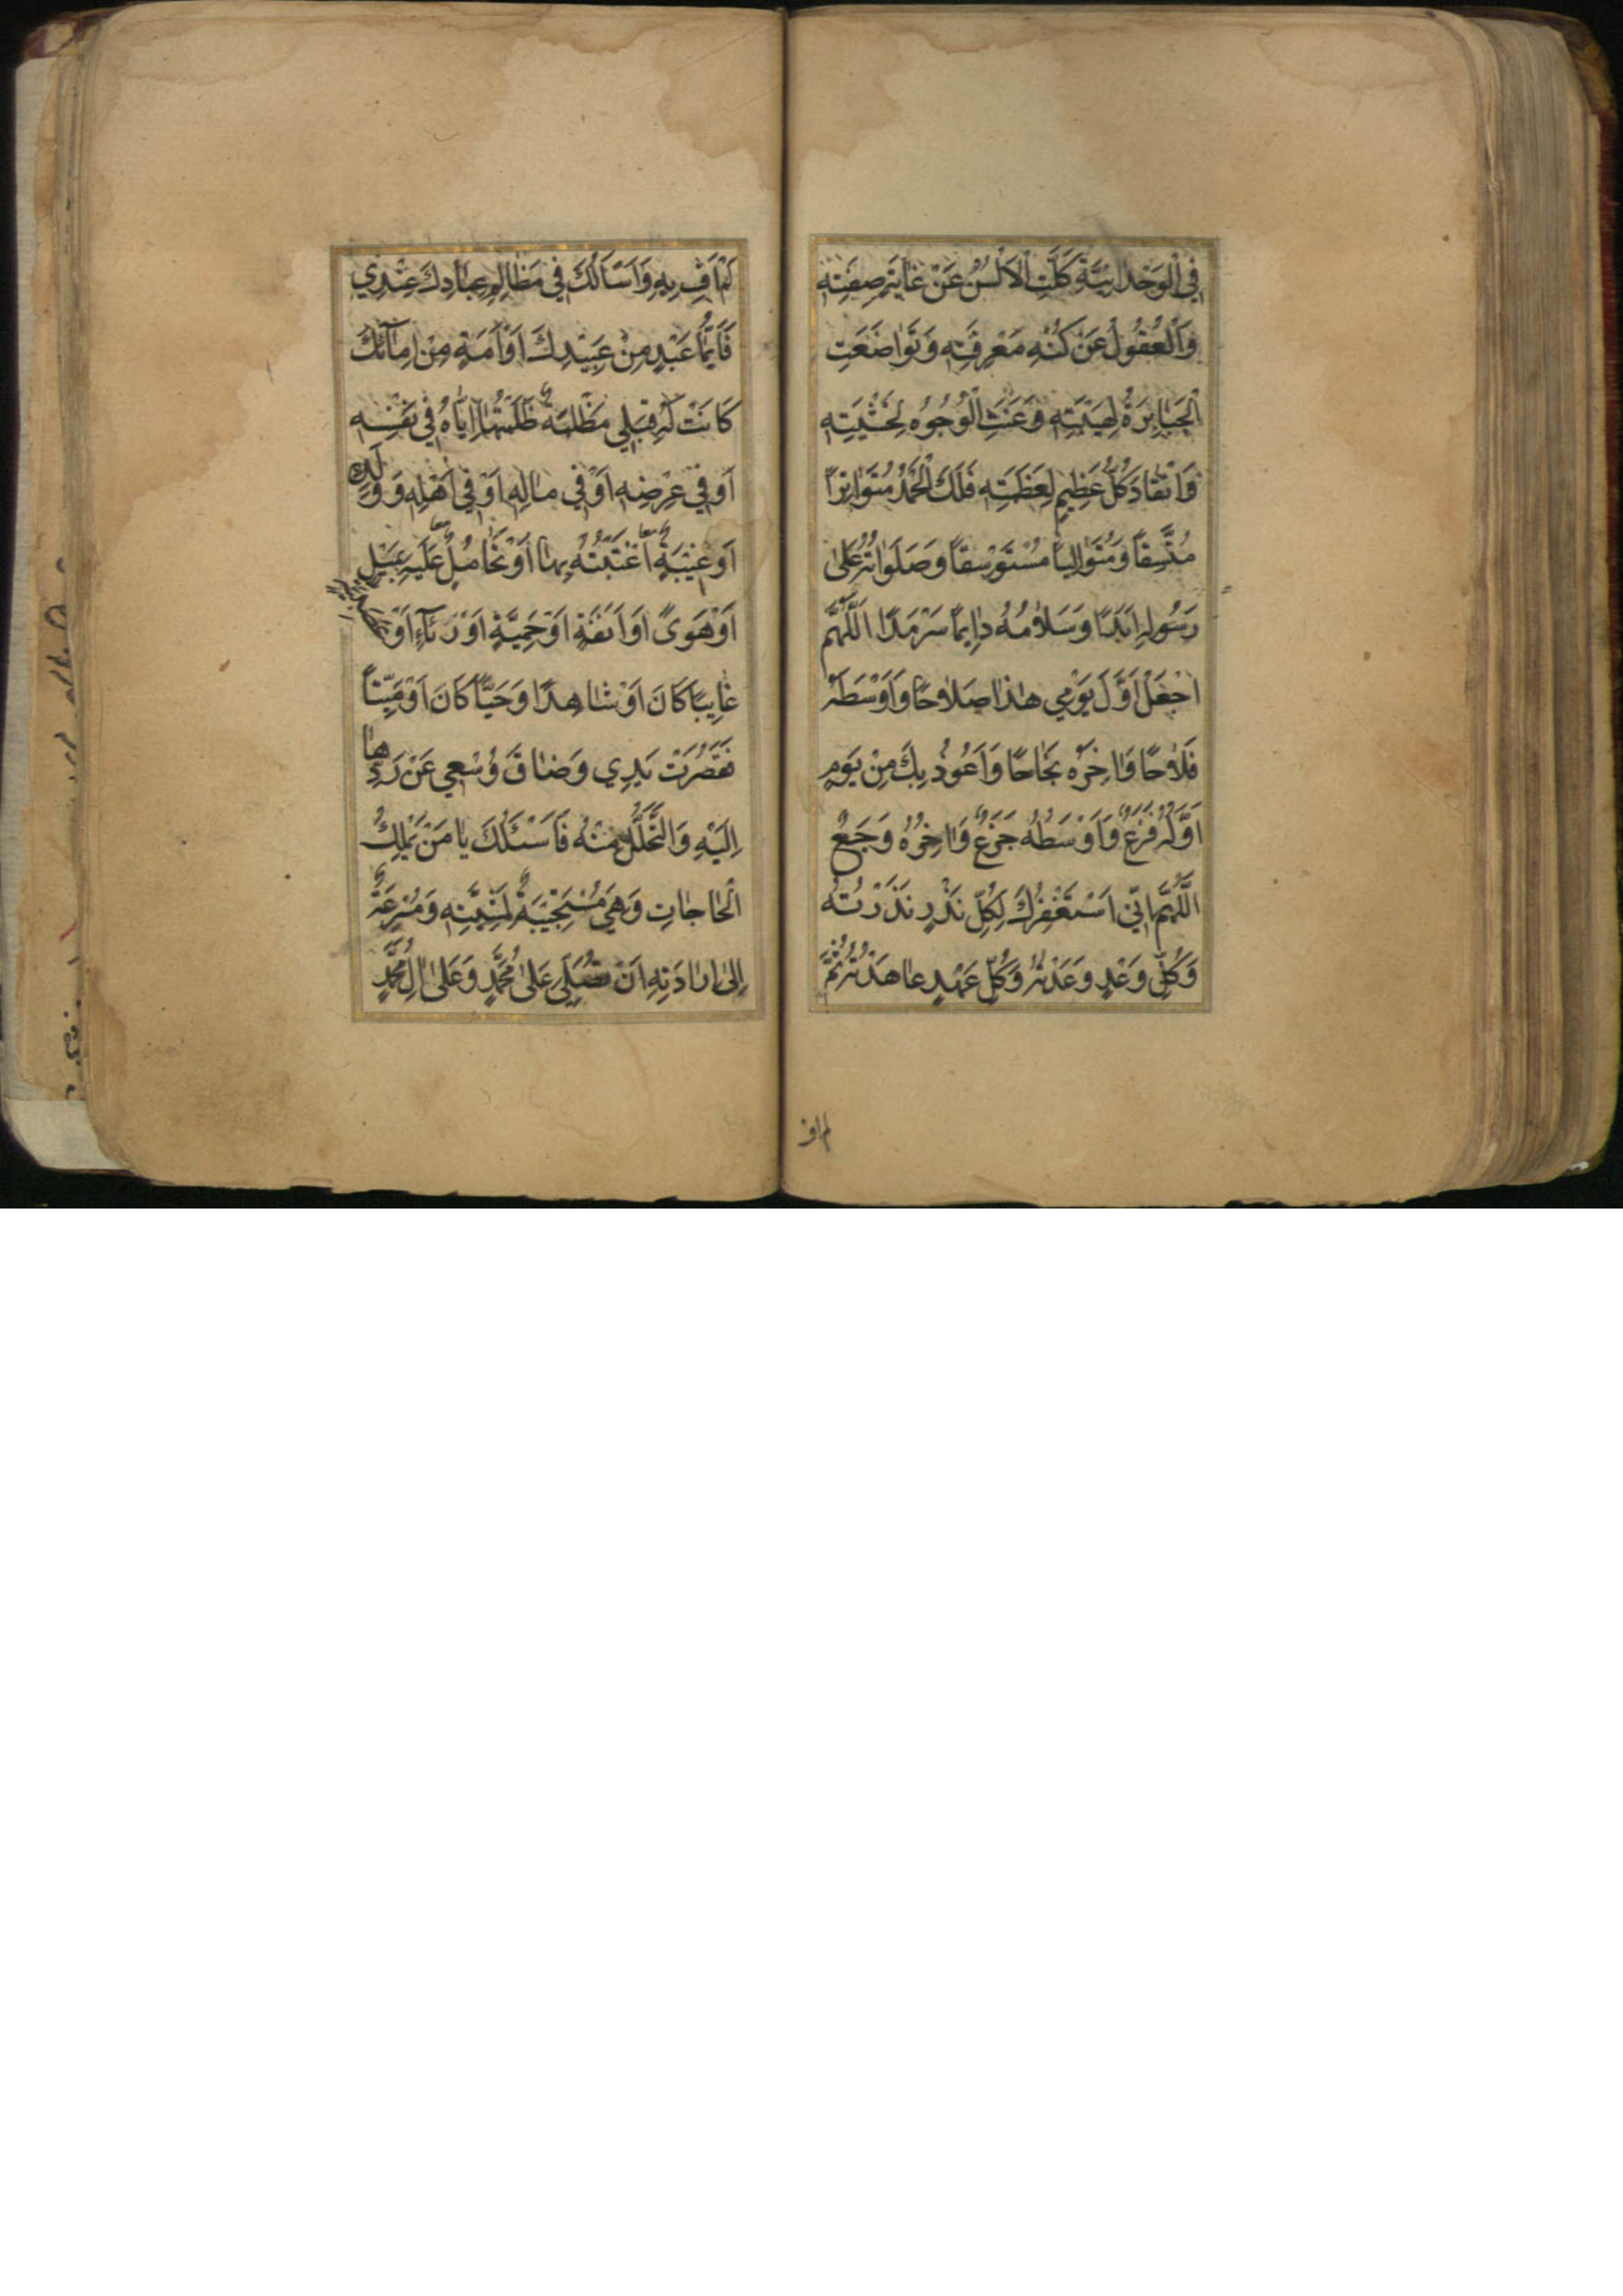 فِي الْوَحْدَانِيَّةِ وَكَلَّتِ الْاَلْسُنُ عَنْ غَايَةِ صِفَتِهِ
وَالْعُقُولُ عَنْ كُنْهِ مَعْرِفَتِهِ وَتَوَاضَعَتِ
الْجَبَابِرَةُ لِهَيْبَتِهِ وَعَنَتِ الْوُجُوهُ لِخَشْيَتِهِ
وَانْقَادَ كُلُّ عَظِيمٍ لِعَظَمَتِهِ فَلَكَ الْحَمْدُ مُتَوَاتِرًا
مُتَّسِقًا وَمُتَوَالِيًا مُسْتَوْسِقًا وَصَلَوَاتُهُ عَلَى
رَسُولِهِ اَبَدًا وَسَلَامُهُ دَايِمًا سَرْمَدًا اَللّٰهُمَّ
اجْعَلْ اَوَّلَ يَوْمِي هٰذَا صَلَاحًا وَاَوْسَطَهُ
فَلَاحًا وَاٰخِرَهُ نَجَاحًا وَاَعُوذُ بِكَ مِنْ يَوْمٍ
اَوَّلُهُ فَزَعٌ وَاَوْسَطُهُ جَزَعٌ وَاٰخِرُهُ وَجَعٌ
اَللّٰهُمَّ اِنِّي اَسْتَغْفِرُكَ لِكُلِّ نَذْرٍ نَذَرْتُهُ
وَكُلِّ وَعْدٍ وَعَدْتُهُ وَكُلِّ عَهْدٍ عَاهَدْتُهُ ثُمَّ
لم اف
لَمْ اَفِ بِهِ وَاَسْاَلُكَ فِي مَظَالِمِ عِبَادِكَ عِنْدِي
فَاَيُّمَا عَبْدٍ مِنْ عَبِيْدِكَ اَوْ اَمَةٍ مِنْ اِمَآئِكَ
كَانَتْ لَهُ قِبَلِي مَظْلِمَةٌ ظَلَمْتُهَا اِيَّاهُ فِي نَفْسِهِ
اَوْ فِي عِرْضِهِ اَوْ فِي مَالِهِ اَوْ فِي اَهْلِهِ وَوَلَدِهِ
اَوْ غِيْبَةٌ اغْتَبْتُهُ بِهَا اَوْ تَحَامُلٌ عَلَيْهِ بِمَيْلٍ
اَوْ هَوًى اَوْ اَنَفَةٍ اَوْ حَمِيَّةٍ اَوْ رِئَآءٍ اَوْ
غَايِبًا كَانَ اَوْ شَاهِدًا وَحَيًّا كَانَ اَوْ مَيِّتًا
فَقَصُرَتْ يَدِي وَضَاقَ وُسْعِي عَنْ رَدِّهَا
اِلَيْهِ وَالتَّحَلُّلِ مِنْهُ فَاَسْئَلُكَ يَا مَنْ يَمْلِكُ
الْحَاجَاتِ وَهِيَ مُسْتَجِيْبَةٌ لِمَشِيَّتِهِ وَمُسْرِعَةٌ
اِلٰى اِرَادَتِهِ اَنْ تُصَلِّيَ عَلٰى مُحَمَّدٍ وَعَلٰى اٰلِ مُحَمَّدٍ